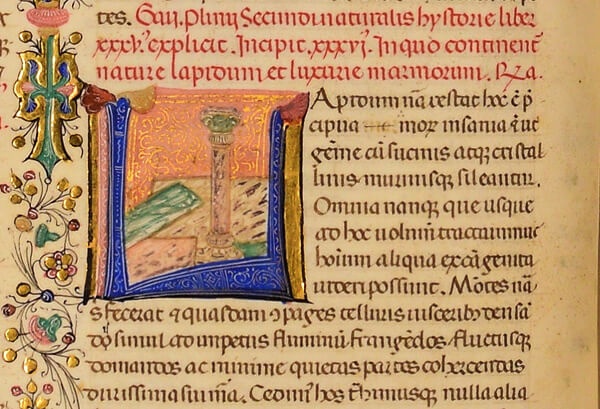 tes. Gaii. Plinii Secundi naturalis hystorie liber
xxxv. explicit. Incipit. xxxvi. In quo continent
nature lapidum et luxurie marmorum. Rza.
Lapidum nã restat hoc ẽ p̃
cipua mor insania ẽ ut
gẽme cũ sucinis atqꝫ cristal
linis murinisqꝫ sileantur.
Omnia nanqꝫ que usque
ad hoc uolum̃ tractauimus
hoĩnm aliqua excã genita
uideri possunt. Mõtes nã
s fecerat ⁊ quasdam ꝯpages telluris uiscerib densã
simul ad impetus fluminũ frangẽdos fluctusqꝫ
domandos ac minime quietas partes cohercendas
durissima sui mã. Cedim hos trhimusqꝫ nulla alia